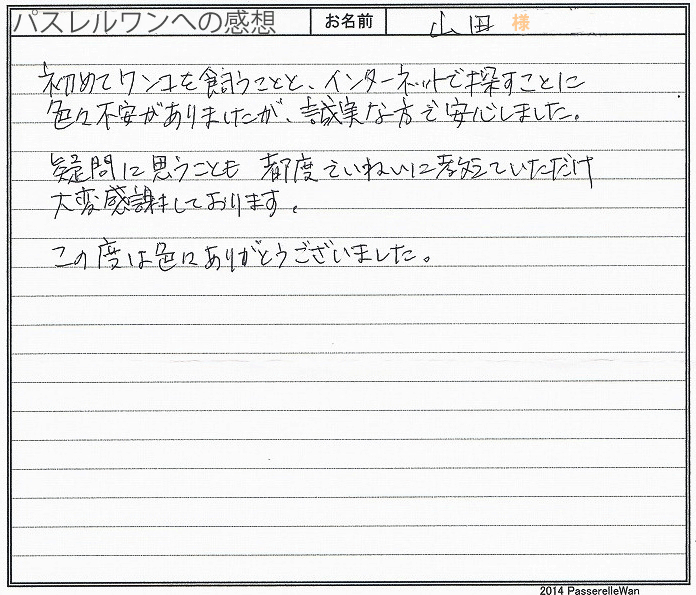 パスレルワンへの感想 お名前 山田 様
初めてワンコを飼うことと、インターネットで探すことに
色々不安がありましたが、誠実な方で安心しました。
疑問に思うことも 都度ていねいに教えていただけ
大変感謝しております。
この度は色々ありがとうございました。
2014 PasserelleWan